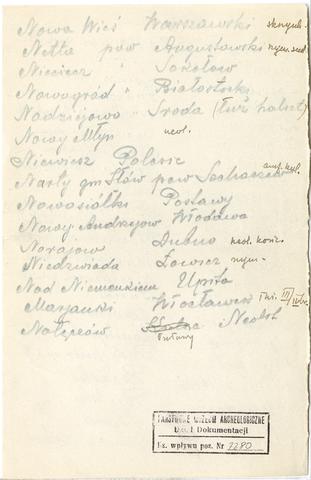 Nowa Wieś Warszawski
Netta pow Augustowski
Nieciecz " Sokołów
Nowogród " Białostocki
Nadziejowo " Środa
Nowy Młyn neol.
Niewisz Polesie
Narty gm Iłów pow Sochaczew
Nowosiółki Postawy
Nowy Andrzejow Włodawa
Norajow Dubno neol. końc.
Niedźwiada Łowicz rzym.
Nad Niemenkiem Upita
Marjanki Włocławek III/IV
Nałęczów Neolit
Puławy
PAŃSTWOWE MUZEUM ARCHEOLOGICZNE
Dział Dokumentacji
Ks. wpływu poz. Nr 2280